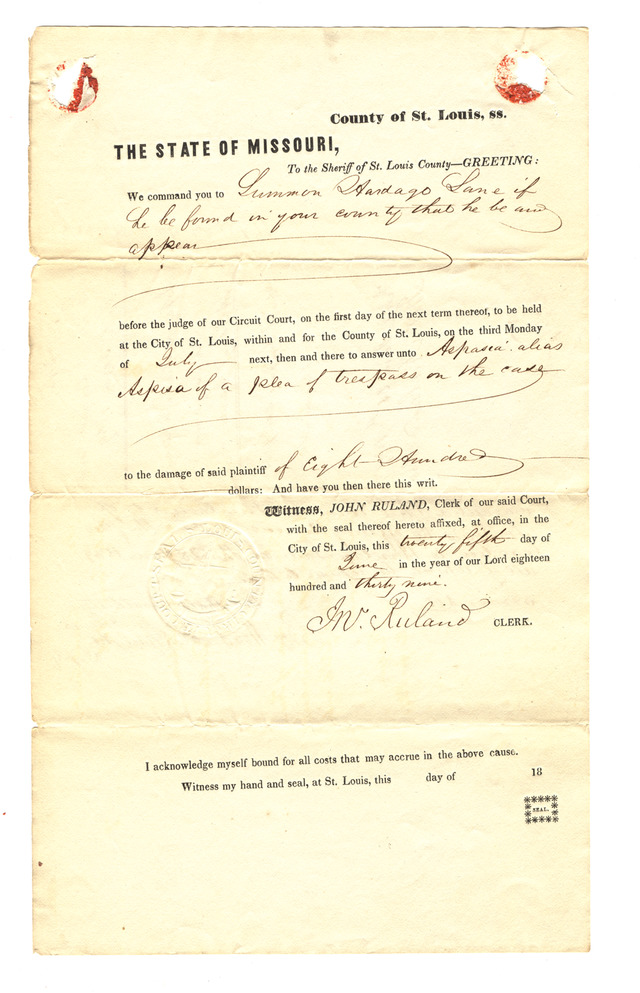 County of St. Louis, ss.
THE STATE OF MISSOURI,
To the Sheriff of St. Louis County—GREETING:
We command you to Summon Hardago Lane if
he be found in your county that he be and
appear
before the judge of our Circuit Court, on the first day of the next term thereof, to be held
at the City of St. Louis, within and for the County of St. Louis, on the third Monday
of July next, then and there to answer unto Aspasia alias
Aspisa of a plea of trespass on the case
to the damage of said plaintiff of Eight Hundred
dollars: And have you then there this writ.
Witness, JOHN RULAND, Clerk of our said Court,
with the seal thereof hereto affixed, at office, in the
City of St. Louis, this twenty fifth day of
June in the year of our Lord eighteen
hundred and thirty nine.
Jno. Ruland CLERK.
I acknowledge myself bound for all costs that may accrue in the above cause.
Witness my hand and seal, at St. Louis, this day of 18
SEAL.